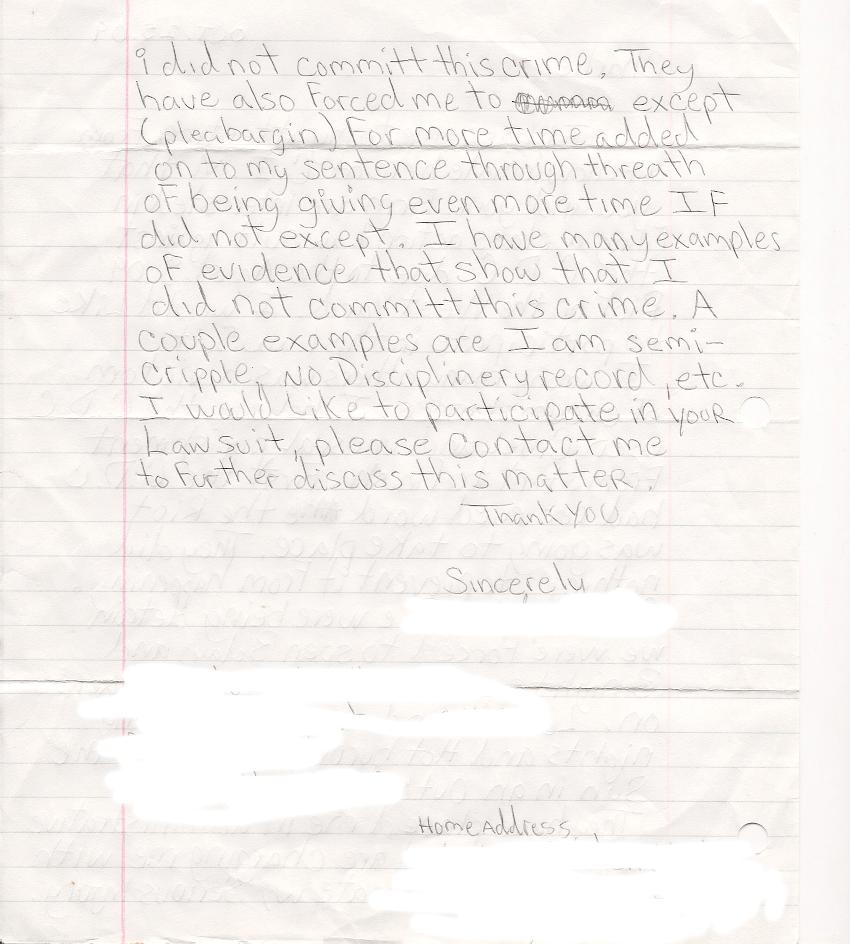 i did not committ this crime. They
have also Forced me to except
(pleabargin) For more time added
on to my sentence through threath
of being giving even more time IF
did not except. I have many examples
of evidence that show that I
did not committ this crime. A
couple examples are I am semi-
Cripple, No Disciplinery record, etc.
I would Like to participate in YOUR
Lawsuit, please Contact me
to Further discuss this matter.
Thank YOU
Sincerely
Home Address,